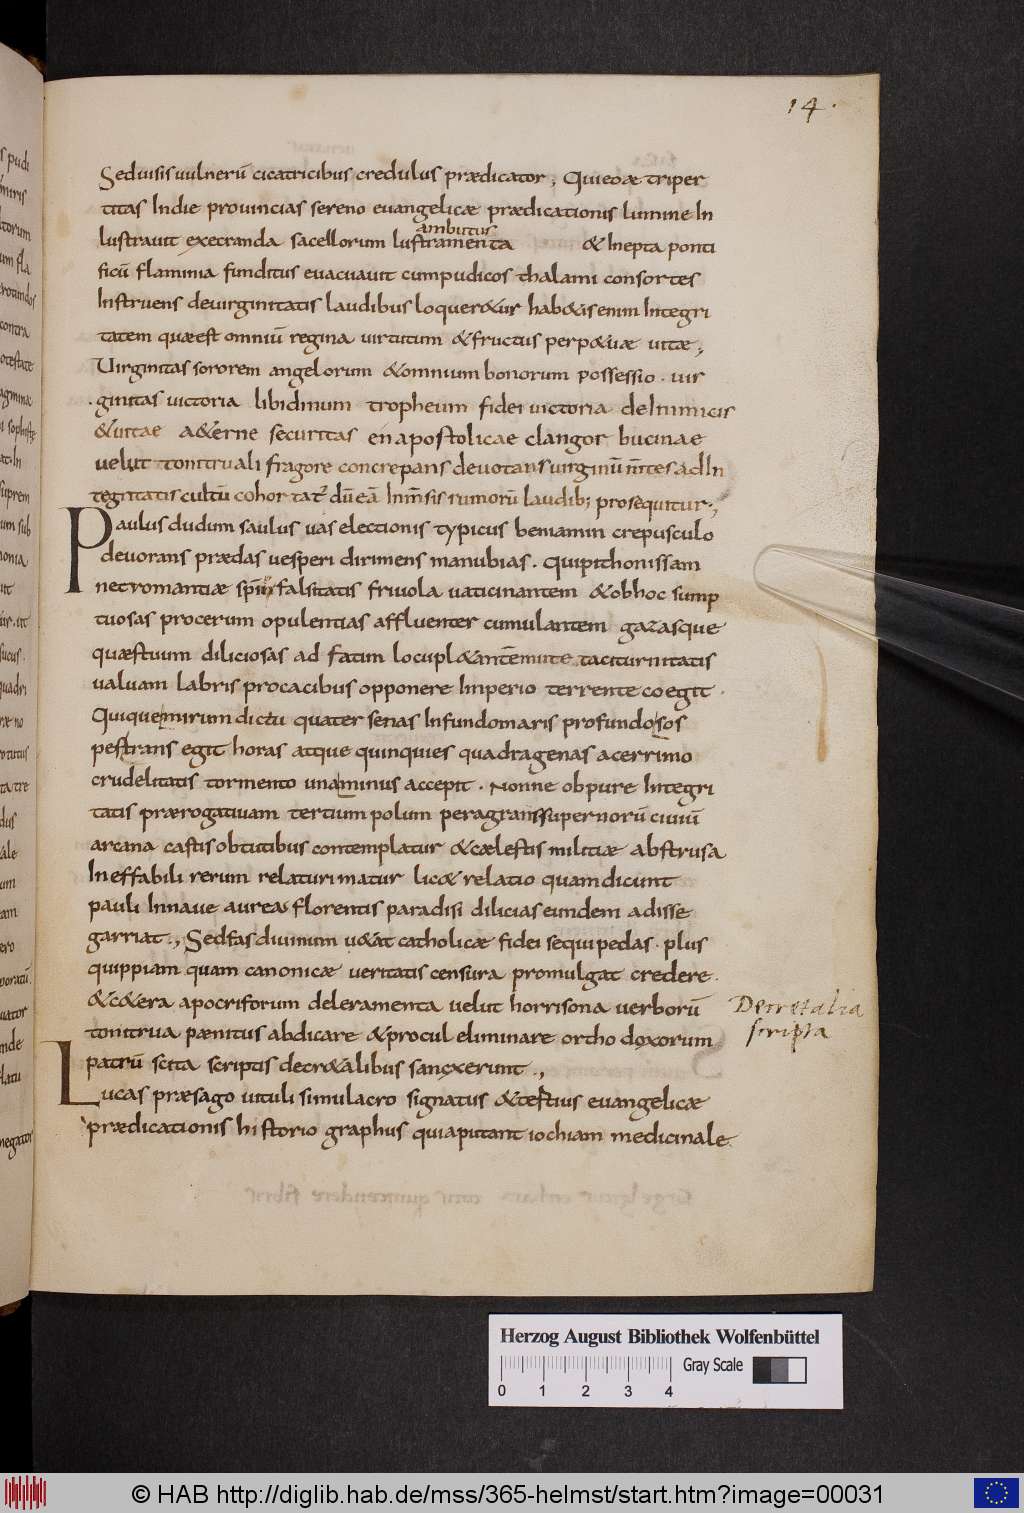 14.
Seduisis uulnerū cicatricibus credulus prædicator; Qui eoæ triper
titas Indie prouincias sereno euangelicæ prædicationis lumine In
ambitus
lustrauit execranda sacellorum lustramenta & Inepta ponti
ficū flaminia funditus euacuauit cumpudicos thalami consortes
Instruens deuirginitatis laudibus loquer&ur hab&is enim Integri
tatem quæest omniū regina uirtutum &fructus perp&uæ uitæ;
Uirginitas sororem angelorum &omnium bonorum possessio. uir
ginitas uictoria libidinum tropheum fidei uictoria deInimicis
&uitae a&erne securitas en apostolicae clangor bucinae
uelut tonitruali fragore concrepans deuotans uirginū m̄tes ad In
tegritatis cultū cohortat᷑ dū eā Inm̄sis rumorū laudib; prosequitur;
Paulus dudum saulus uas electionis typicus beniamin crepusculo
deuorans prædas uesperi dirimens manubias. quipithonissam
necromantiæ sp̄m falsitatis friuola uaticinantem &obhoc sump
tuosas procerum opulentias affluenter cumulantem gazasque
quæstuum diliciosas ad fatim locupl&antem mute taciturnitatis
ualuam labris procacibus opponere Imperio terrente coegit.
Quique mirum dictu quater senas Infundo maris profundo sos
pes trans egit horas atque quinquies quadragenas acerrimo
crudelitatis tormento una minus accepit. Nonne obpure Integri
tatis prærogatiuam tertium polum peragrans supernorū ciuiū
arcana castis obtutibus contemplatur &cælestis militiæ abstrusa
Ineffabili rerum relaturi matur lic& relatio quam dicunt
pauli Innaue aurea florentis paradisi dilicias eundem adisse
garriat., Sedfas diuinum u&at catholicæ fidei sequipedas. plus
quippiam quam canonicæ ueritatis censura promulgat credere.
&c&era apocriforum deleramenta uelut horrisona uerborū
tonitrua pænitus abdicare &procul eliminare ortho doxorum
patrū scita scriptis decr&alibus sanxerunt.,
Decretalia
scripta
Lucas præsago uituli simulacro signatus &testius euangelicæ
prædicationis historio graphus quiaputant iochiam medicinale
Herzog August Bibliothek Wolfenbüttel
Gray Scale
0 1 2 3 4
© HAB http://diglib.hab.de/mss/365-helmst/start.htm?image=00031